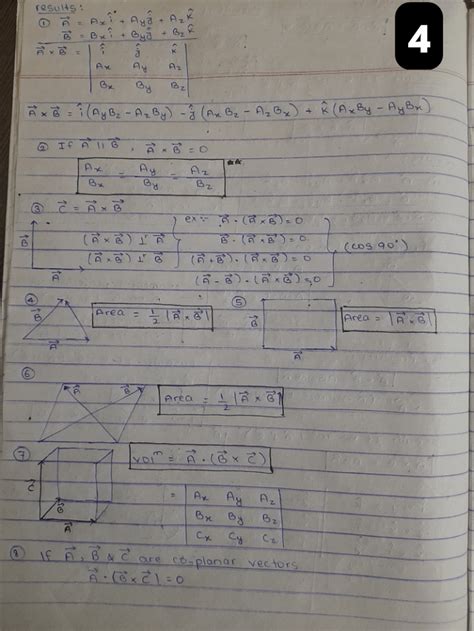 results:
4
① A⃗ = Axî + Ayĵ + Azk̂
B⃗ = Bxî + Byĵ + Bzk̂
A⃗ × B⃗ = | î ĵ k̂ |
| Ax Ay Az |
| Bx By Bz |
A⃗ × B⃗ = î(AyBz - AzBy) - ĵ(AxBz - AzBx) + k̂(AxBy - AyBx)
② If A⃗ || B⃗, A⃗ × B⃗ = 0
Ax/Bx = Ay/By = Az/Bz **
③ C⃗ = A⃗ × B⃗
B⃗
A⃗
(A⃗ × B⃗) ⊥ A⃗
(A⃗ × B⃗) ⊥ B⃗
ex:- A⃗ · (A⃗ × B⃗) = 0
B⃗ · (A⃗ × B⃗) = 0
(A⃗ + B⃗) · (A⃗ × B⃗) = 0
(A⃗ - B⃗) · (A⃗ × B⃗) = 0
(cos 90°)
④ B⃗ A⃗ Area = 1/2 |A⃗ × B⃗|
⑤ B⃗ A⃗ Area = |A⃗ × B⃗|
⑥ A⃗ B⃗ Area = 1/2 |A⃗ × B⃗|
⑦ C⃗ B⃗ A⃗ volᵐ = A⃗ · (B⃗ × C⃗)
= | Ax Ay Az |
| Bx By Bz |
| Cx Cy Cz |
⑧ If A⃗, B⃗ & C⃗ are co-planar vectors
A⃗ · (B⃗ × C⃗) = 0